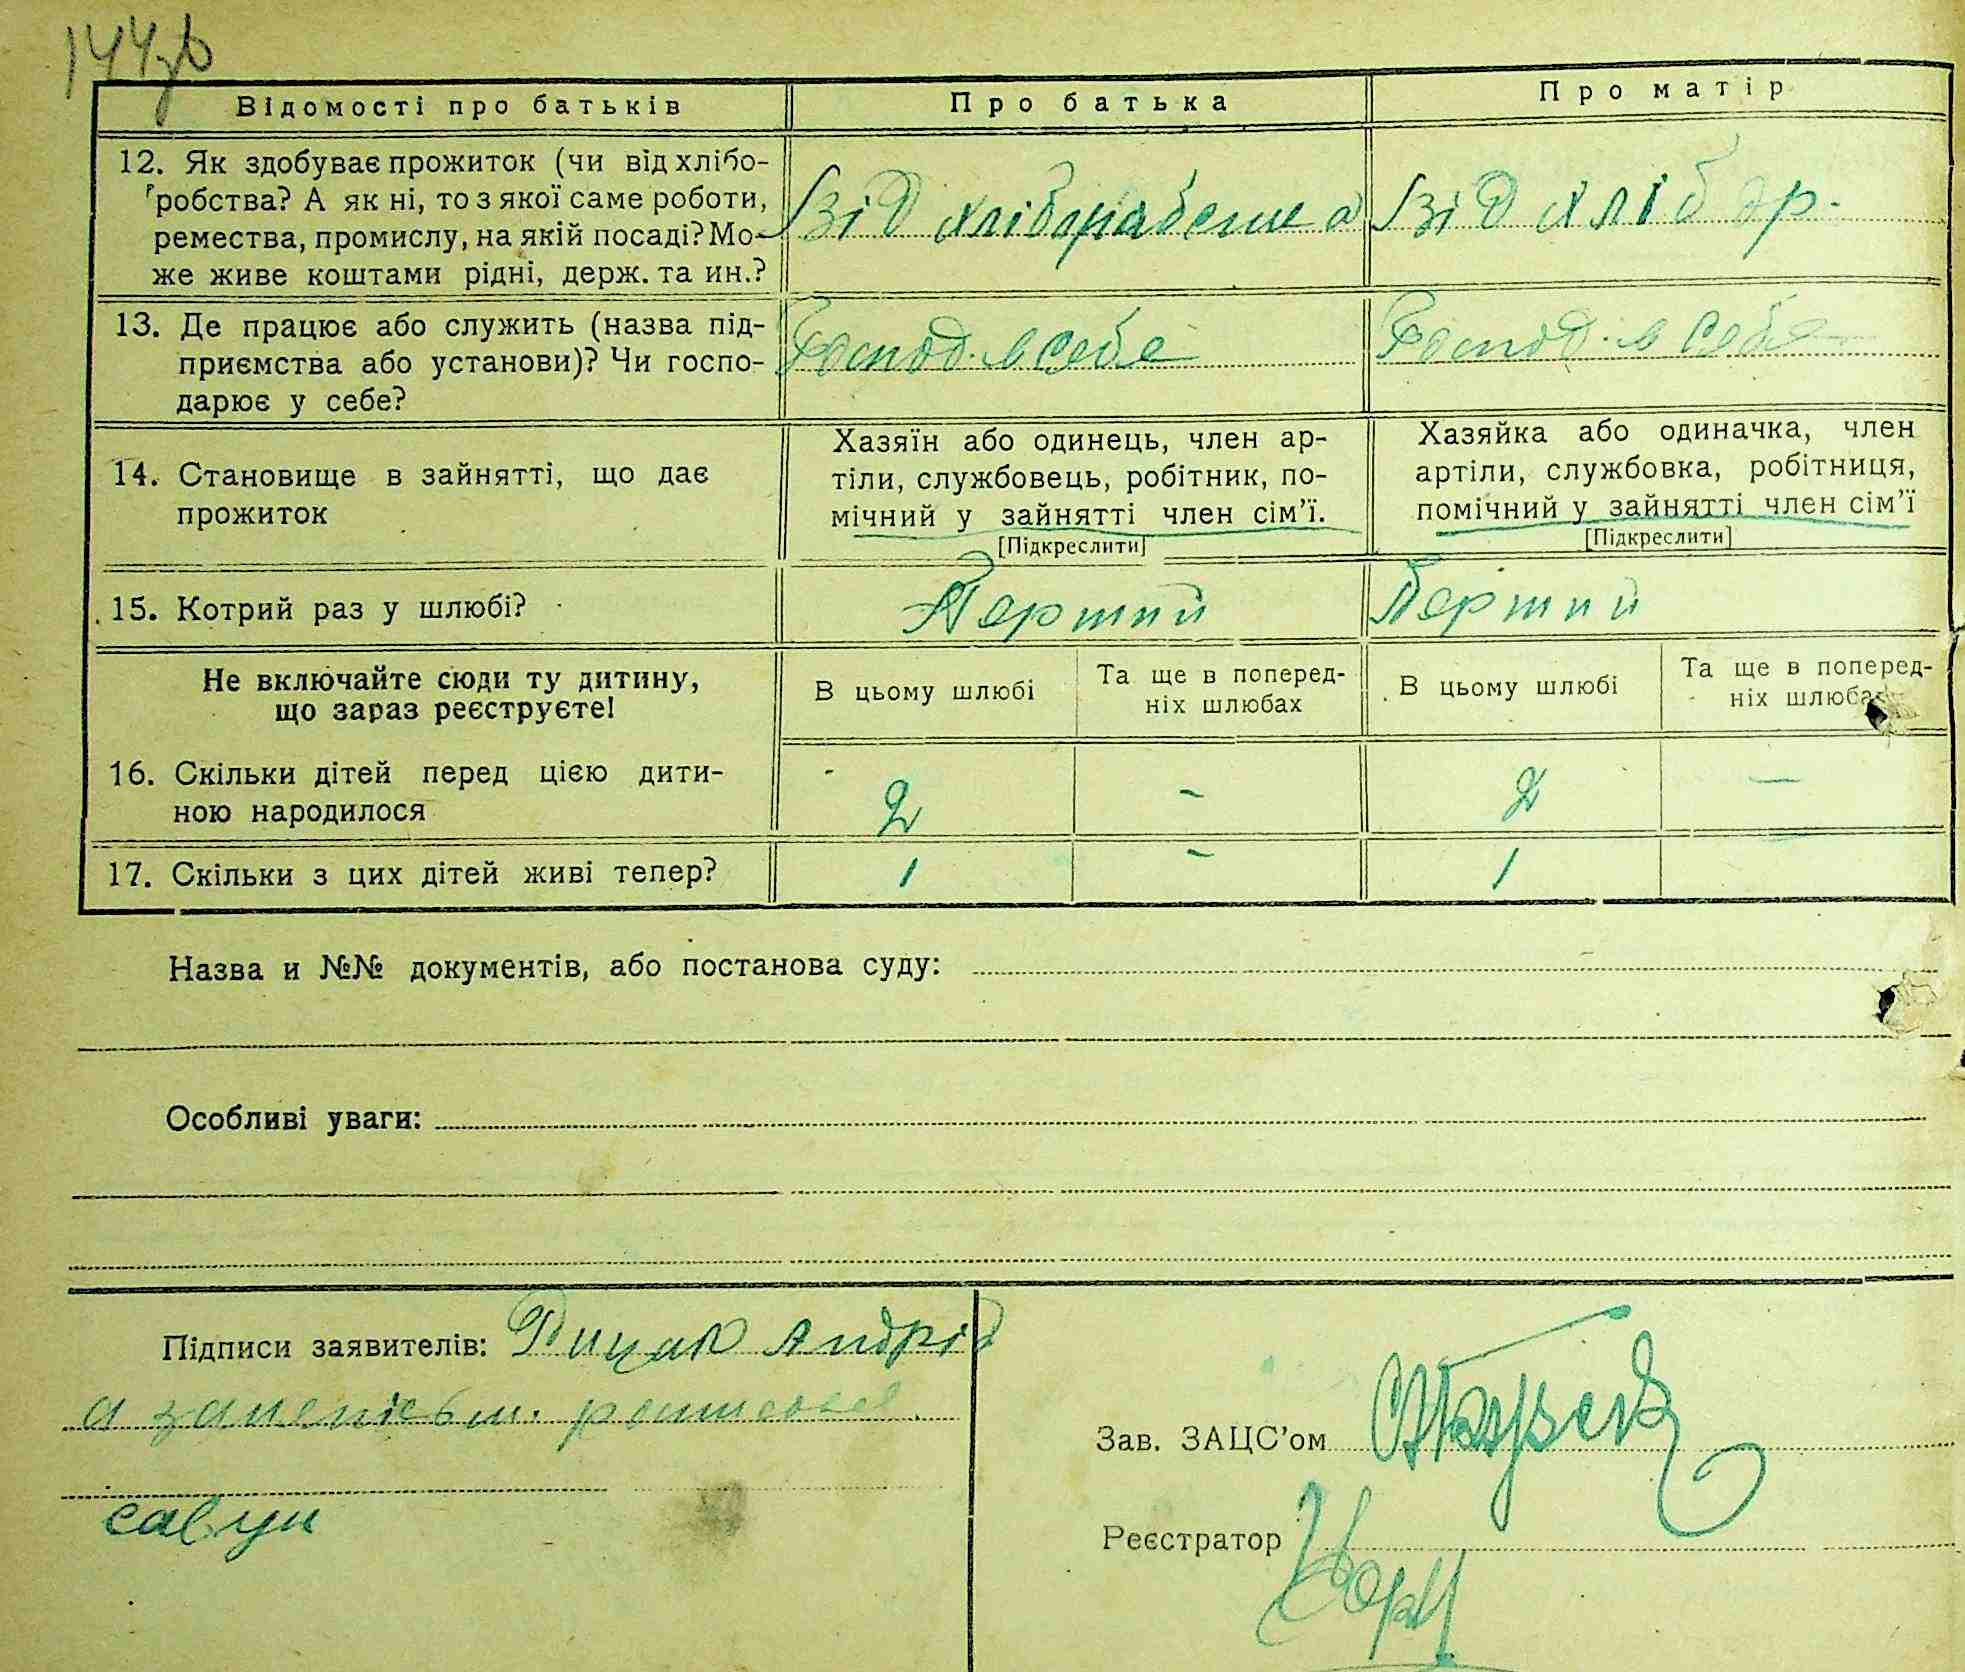 144зв
Відомості про батьків
Про батька
Про матір
12. Як здобуває прожиток (чи від хлібо-
робства? А як ні, то з якої саме роботи,
ремества, промислу, на якій посаді? Мо-
же живе коштами рідні, держ. та ин.?
Від хліборабства
Від хлібор.
13. Де працює або служить (назва під-
приємства або установи)? Чи госпо-
дарює у себе?
Господ. в себе
Господ. в себе
14. Становище в зайнятті, що дає
прожиток
Хазяїн або одинець, член ар-
тіли, службовець, робітник, по-
мічний у зайнятті член сім'ї.
[Підкреслити]
Хазяйка або одиначка, член
артіли, службовка, робітниця,
помічний у зайнятті член сім'ї
[Підкреслити]
15. Котрий раз у шлюбі?
Перший
Перший
Не включайте сюди ту дитину,
що зараз реєструєте!
В цьому шлюбі
Та ще в поперед-
ніх шлюбах
В цьому шлюбі
Та ще в поперед-
ніх шлюбах
16. Скільки дітей перед цією дити-
ною народилося
2 - 2 —
17. Скільки з цих дітей живі тепер?
1 - 1
Назва и №№ документів, або постанова суду:
Особливі уваги:
Підписи заявителів: Андрій
а
савун
Зав. ЗАЦС'ом
Реєстратор